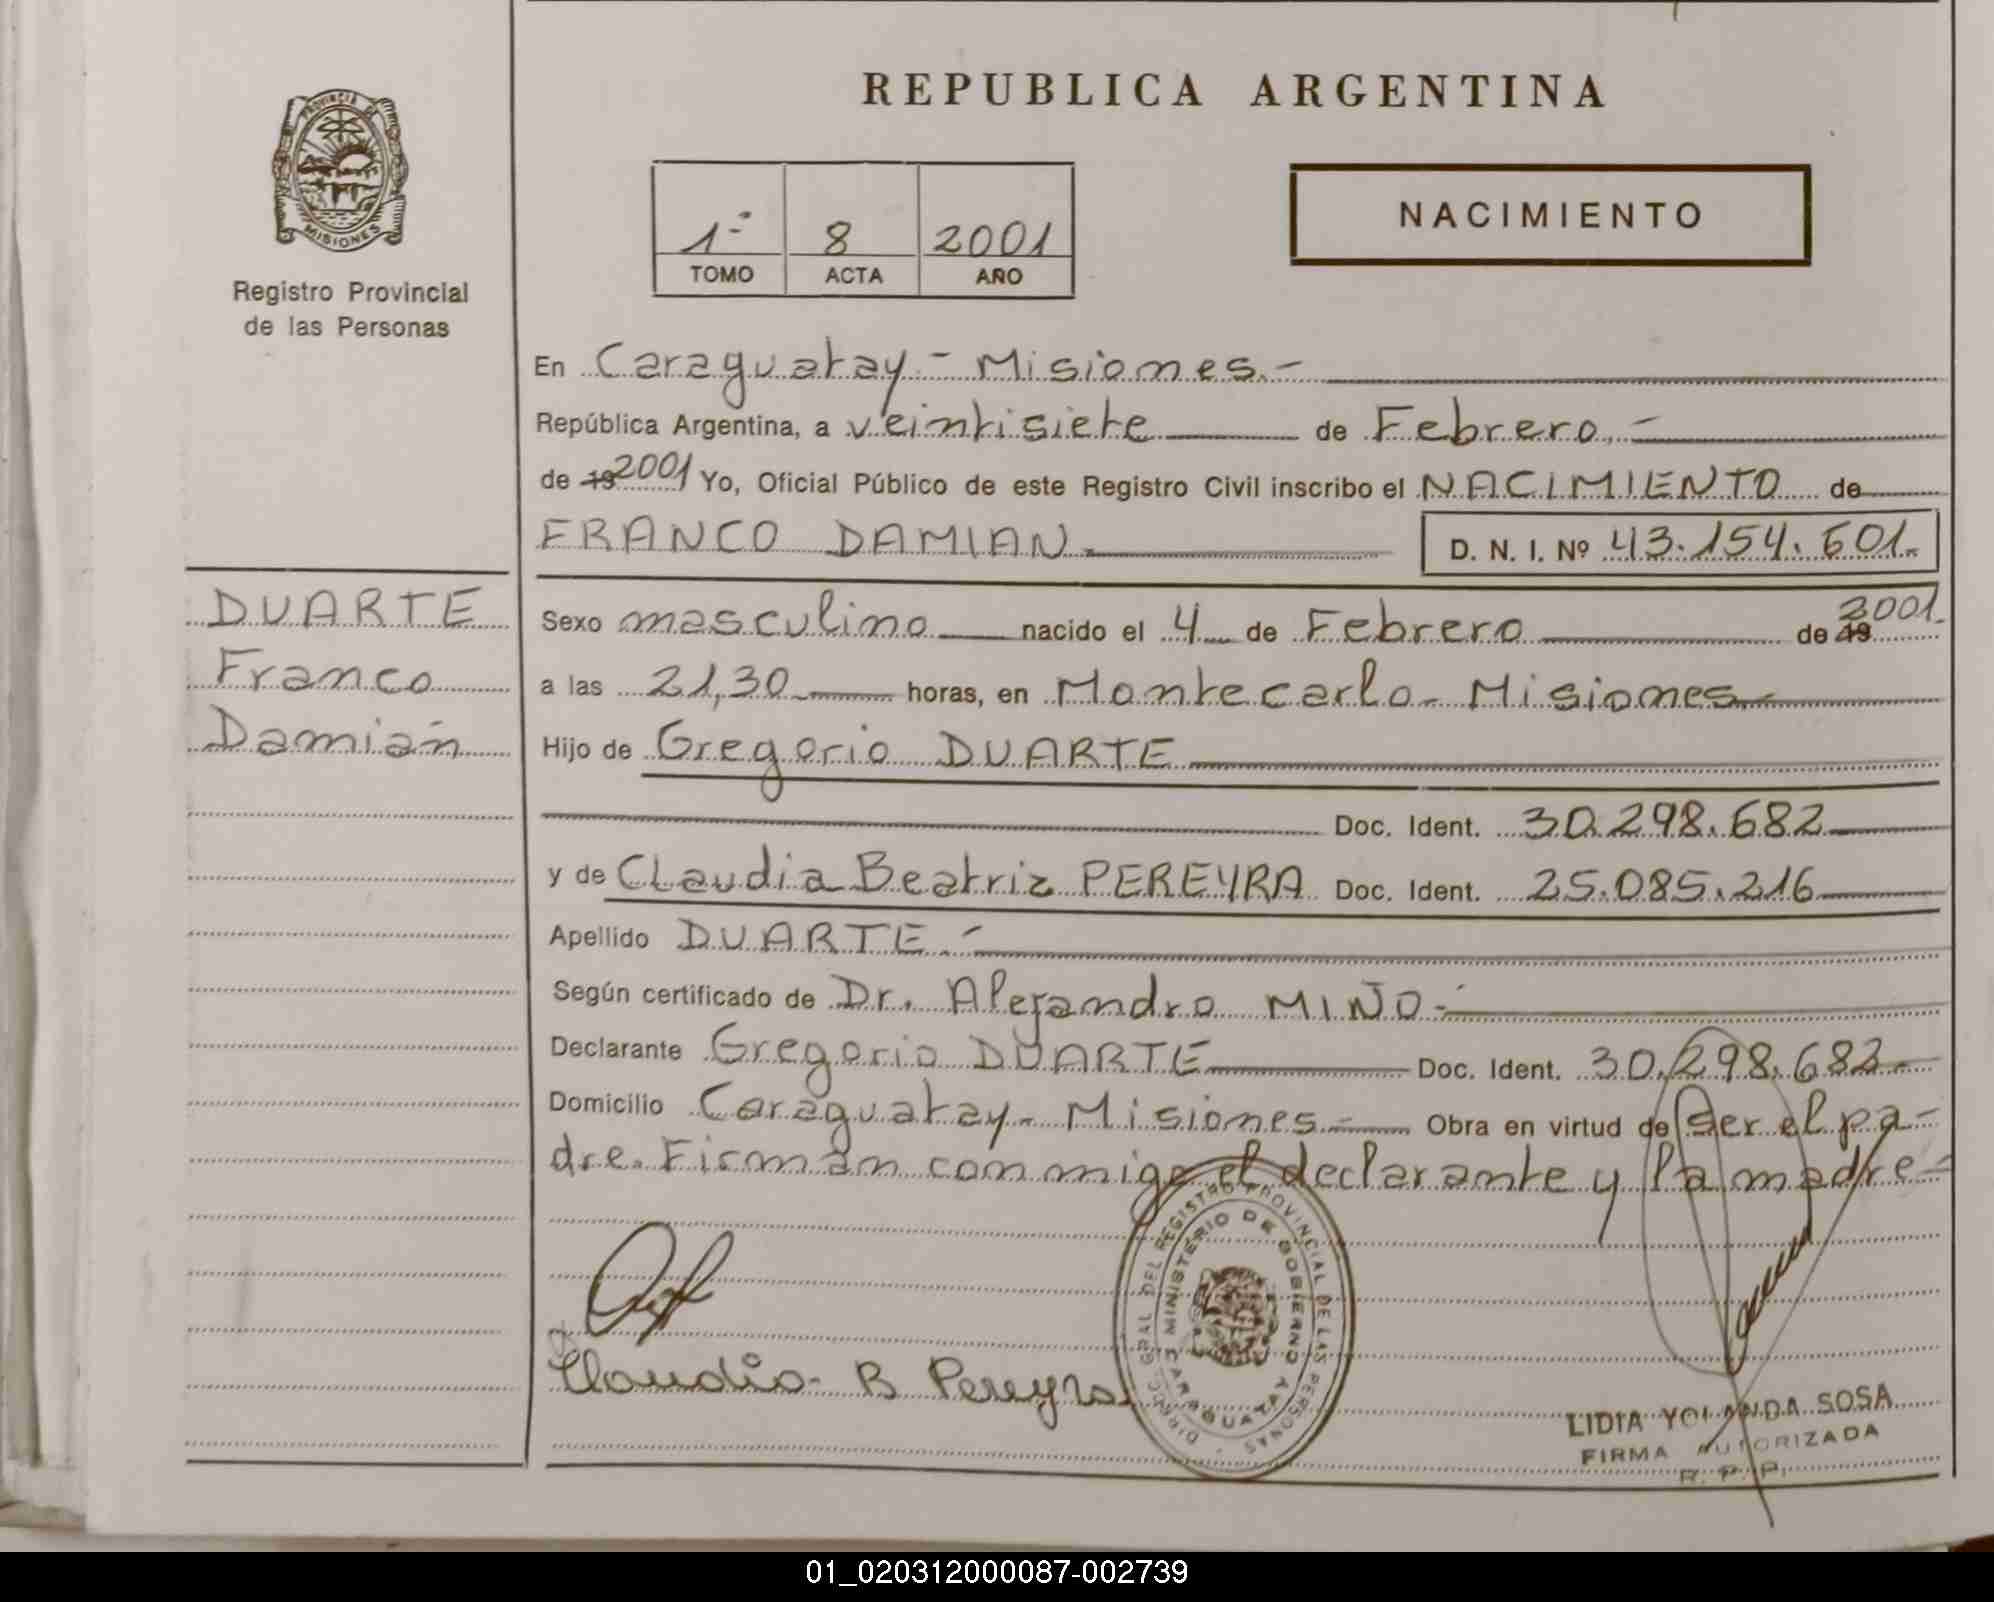 REPUBLICA ARGENTINA
PROVINCIA DE MISIONES
Registro Provincial
de las Personas
1º 8 2001
TOMO ACTA AÑO
NACIMIENTO
En Caraguatay - Misiones.-
República Argentina, a veintisiete de Febrero.-
de 19 2001 Yo, Oficial Público de este Registro Civil inscribo el NACIMIENTO de
FRANCO DAMIAN D. N. I. Nº 43.154.601.-
DUARTE
Franco
Damián
Sexo masculino nacido el 4 de Febrero de 19 2001.
a las 21,30 horas, en Montecarlo - Misiones.-
Hijo de Gregorio DUARTE
Doc. Ident. 30.298.682
y de Claudia Beatriz PEREYRA Doc. Ident. 25.085.216
Apellido DUARTE.-
Según certificado de Dr. Alejandro MIÑO.-
Declarante Gregorio DUARTE Doc. Ident. 30.298.682.-
Domicilio Caraguatay - Misiones.- Obra en virtud de ser el pa-
dre. Firman conmigo el declarante y la madre-
Claudia B Pereyra
DIRECC. GRAL DEL REGISTRO PROVINCIAL DE LAS PERSONAS
MINISTERIO DE GOBIERNO
CARAGUATAY
LIDIA YOLANDA SOSA
FIRMA AUTORIZADA
R. P. P.
01_020312000087-002739